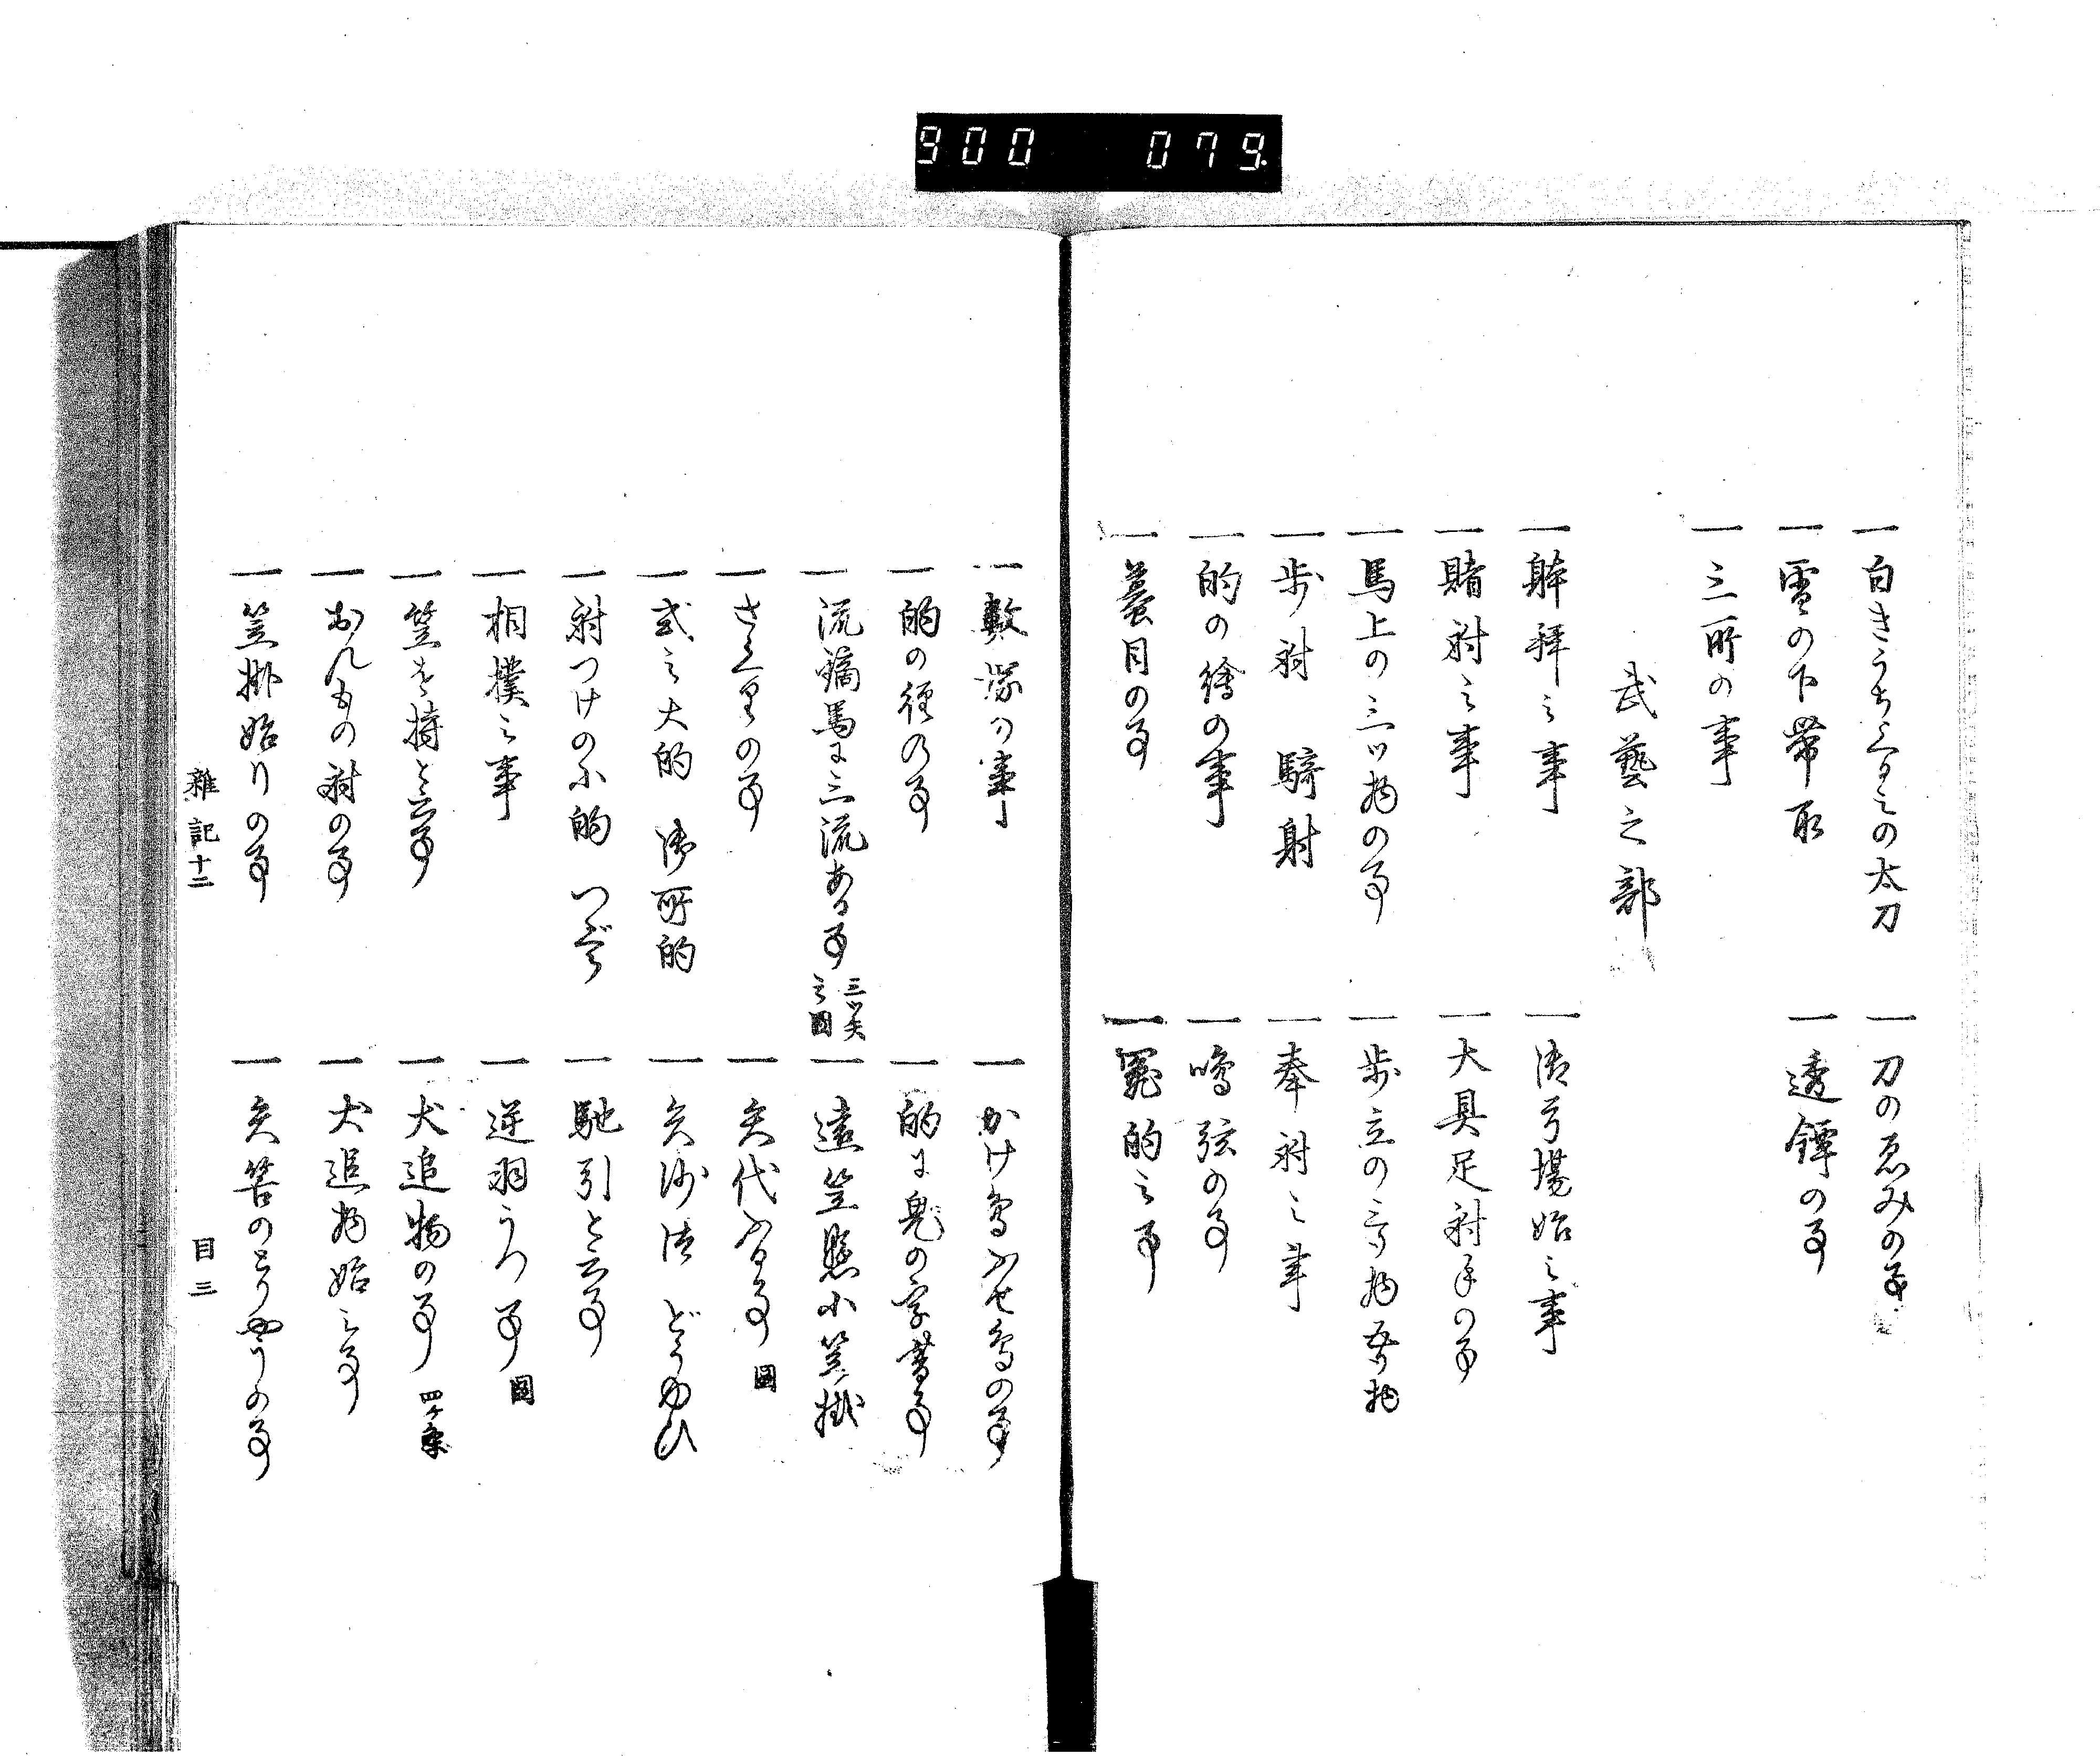 900 079.
一 白きうちくゝみの太刀
一 刀のゑみの事
一 雲の下帯取
一 透鐔の事
一 三所の事
武藝之部
一 躰拝之事
一 御弓場始之事
一 賭射之事
一 大具足射手の事
一 馬上の三ツ物の事
一 歩立の三ツ物 五ツ物
一 歩射 騎射
一 奉射之事
一 的の繪の事
一 鳴弦の事
一 蟇目の事
一 的之事
一 數塚の事
一 かけ鳥ふせ鳥の事
一 的の徑の事
一 的に鬼の字書事
一 流鏑馬に三流ある事 三ツ矢之圖
一 遠笠懸小笠掛
一 さくりの事
一 矢代ふる事 圖
一 式之大的 御所的
一 矢沙汰 どうゆひ
一 射つけの小的
一 馳引と云事
一 相撲之事
一 逆羽うつ事 圖
一 笠を持と云事
一 犬追物の事 四ケ条
一 おんもの射の事
一 犬追物始之事
一 笠掛始りの事
一 矢筈のとりやうの事
雜記十二
目三